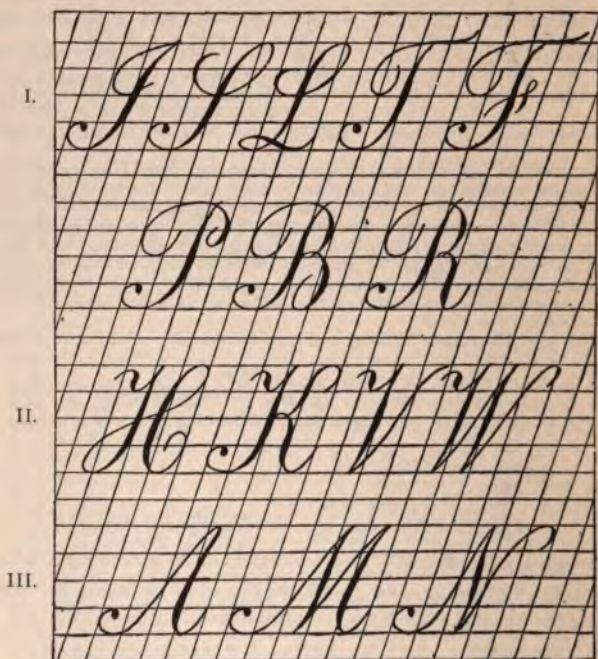 I. I S L T F
P B R
II. H K V W
III. A M N